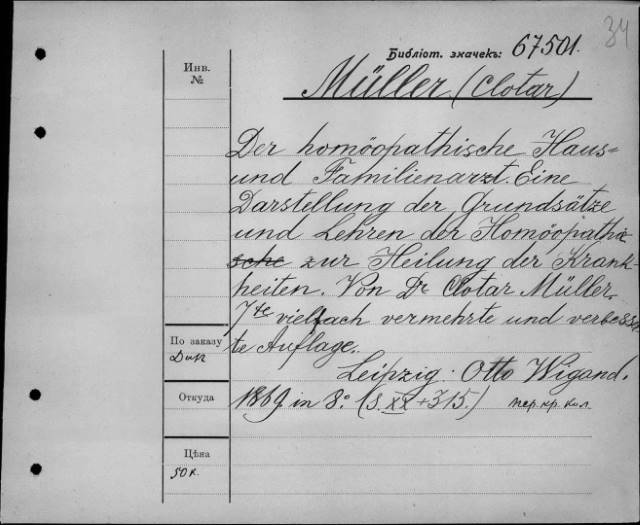 34
Библіот. значекъ: 67501.
Инв.
№
Müller (Clotar)
Der homöopathische Haus=
und Familienarzt. Eine
Darstellung der Grundsätze
und Lehren der Homöopathie
sche zur Heilung der Krank-
heiten. Von Dr Clotar Müller.
7te vielfach vermehrte und verbesser
te Auflage.
Leipzig. Otto Wigand.
1869 in 8° (S. XX + 315.) пер. кр. кол.
По заказу
Дир
Откуда
Цѣна
50 к.